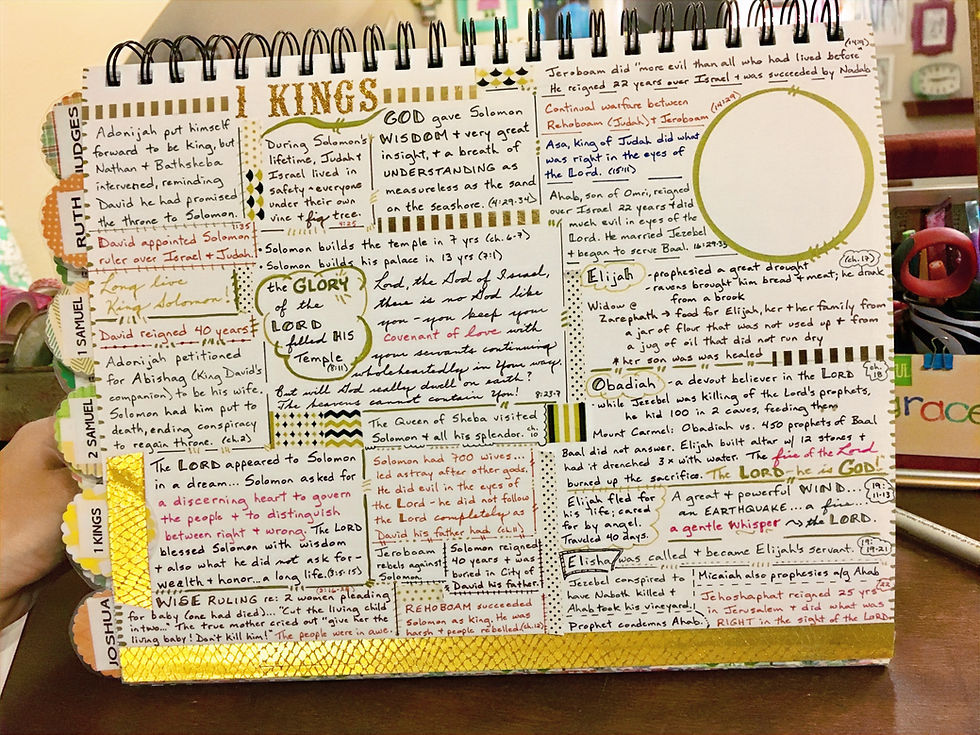 JUDGES
RUTH
1 SAMUEL
2 SAMUEL
1 KINGS
JOSHUA
1 KINGS
Adonijah put himself
forward to be King, but
Nathan + Bathsheba
intervened, reminding
David he had promised
the throne to Solomon.
1:35
David appointed Solomon
ruler over Israel + Judah.
Long live
King Solomon!
David reigned 40 years
Adonijah petitioned
for Abishag (King David's
companion) to be his wife.
Solomon had him put to
death, ending conspiracy
to regain throne. (ch.2)
The LORD appeared to Solomon
in a dream... Solomon asked for
a discerning heart to govern
the people + to distinguish
between right + wrong. The LORD
blessed Solomon with wisdom
+ also what he did not ask for-
wealth + honor...a long life. (3:5-15)
WISE RULING re: 2 women pleading
for baby (one had died)... "Cut the living child
in two..." The true mother cried out "give her the
living baby! Don't kill him!" The people were in awe.
During Solomon's
lifetime, Judah +
Israel lived in
safety - everyone
under their own
vine + fig tree.
4:25
GOD gave Solomon
WISDOM + very great
insight, + a breath of
UNDERSTANDING as
measureless as the sand
on the seashore. (4:29-34)
• Solomon builds the temple in 7 yrs (ch. 6-7)
• Solomon builds his palace in 13 yrs (7:1)
the GLORY
of the
LORD
filled HIS
Temple
(8:11)
Lord, the God of Israel,
there is no God like
you - you keep your
covenant of love with
your servants continuing
wholeheartedly in your way.
But will God really dwell on earth?
The heavens cannot contain You! 8:23-7
The Queen of Sheba visited
Solomon + all his splendor. ch.
Solomon had 700 wives...
led astray after other gods.
He did evil in the eyes of
the Lord - he did not follow
the Lord completely as
David his father had (ch.11)
Jeroboam
rebels against
Solomon
Solomon reigned
40 years + was
buried in City of
David his father.
REHOBOAM succeeded
Solomon as king. He was
harsh + people rebelled. (ch.12)
(14:9)
Jeroboam did "more evil than all who had lived before"
He reigned 22 years over Israel + was succeeded by Nadab
Continual warfare between (14:29)
Rehoboam (Judah) + Jeroboam
Asa, King of Judah did what
was right in the eyes of
the Lord. (15:11)
Ahab, son of Omri, reigned
over Israel 22 years + did
much evil in eyes of the
Lord. He married Jezebel
+ began to serve Baal. 16:29-33
(ch.17)
Elijah - prophesied a great drought
- ravens brought him bread + meat; he drank
from a brook
Widow @
Zarephath → food for Elijah, her + her family from
a jar of flour that was not used up + from
a jug of oil that did not run dry
* her son was was healed
Obadiah - a devout believer in the LORD ch. 18
while Jezebel was killing of the Lord's prophets,
he hid 100 in 2 caves, feeding them
Mount Carmel: Obadiah vs. 450 prophets of Baal
Baal did not answer. Elijah built altar w/ 12 stones +
had it drenched 3x with water. The fire of the Lord
burned up the sacrifice. The LORD - he is GOD!
Elijah fled for
his life; cared
for by angel.
Traveled 40 days.
A great + powerful WIND... 19:11-13
an EARTHQUAKE... a fire...
a gentle whisper ~ the LORD.
Elisha was called + became Elijah's servant. 19:19-21
Jezebel conspired to
have Naboth killed +
Ahab took his vineyard.
Prophet condemns Ahab.
Micaiah also prophesies a/g Ahab
Jehoshaphat reigned 25 yrs
in Jerusalem + did what was
RIGHT in the sight of the LORD
grac